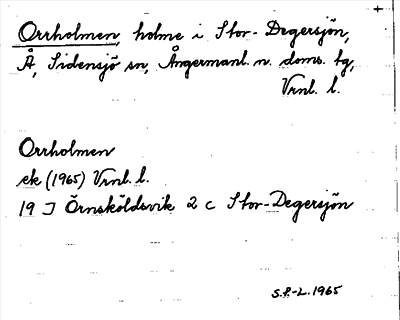 Orrholmen, holme i Stor-Degersjön,
Å, Sidensjö sn, Ångermanl. n. doms. tg,
Vrnl. l.
Orrholmen
ek (1965) Vrnl. l.
19 J Örnsköldsvik 2 c Stor-Degersjön
S.P.-L. 1965